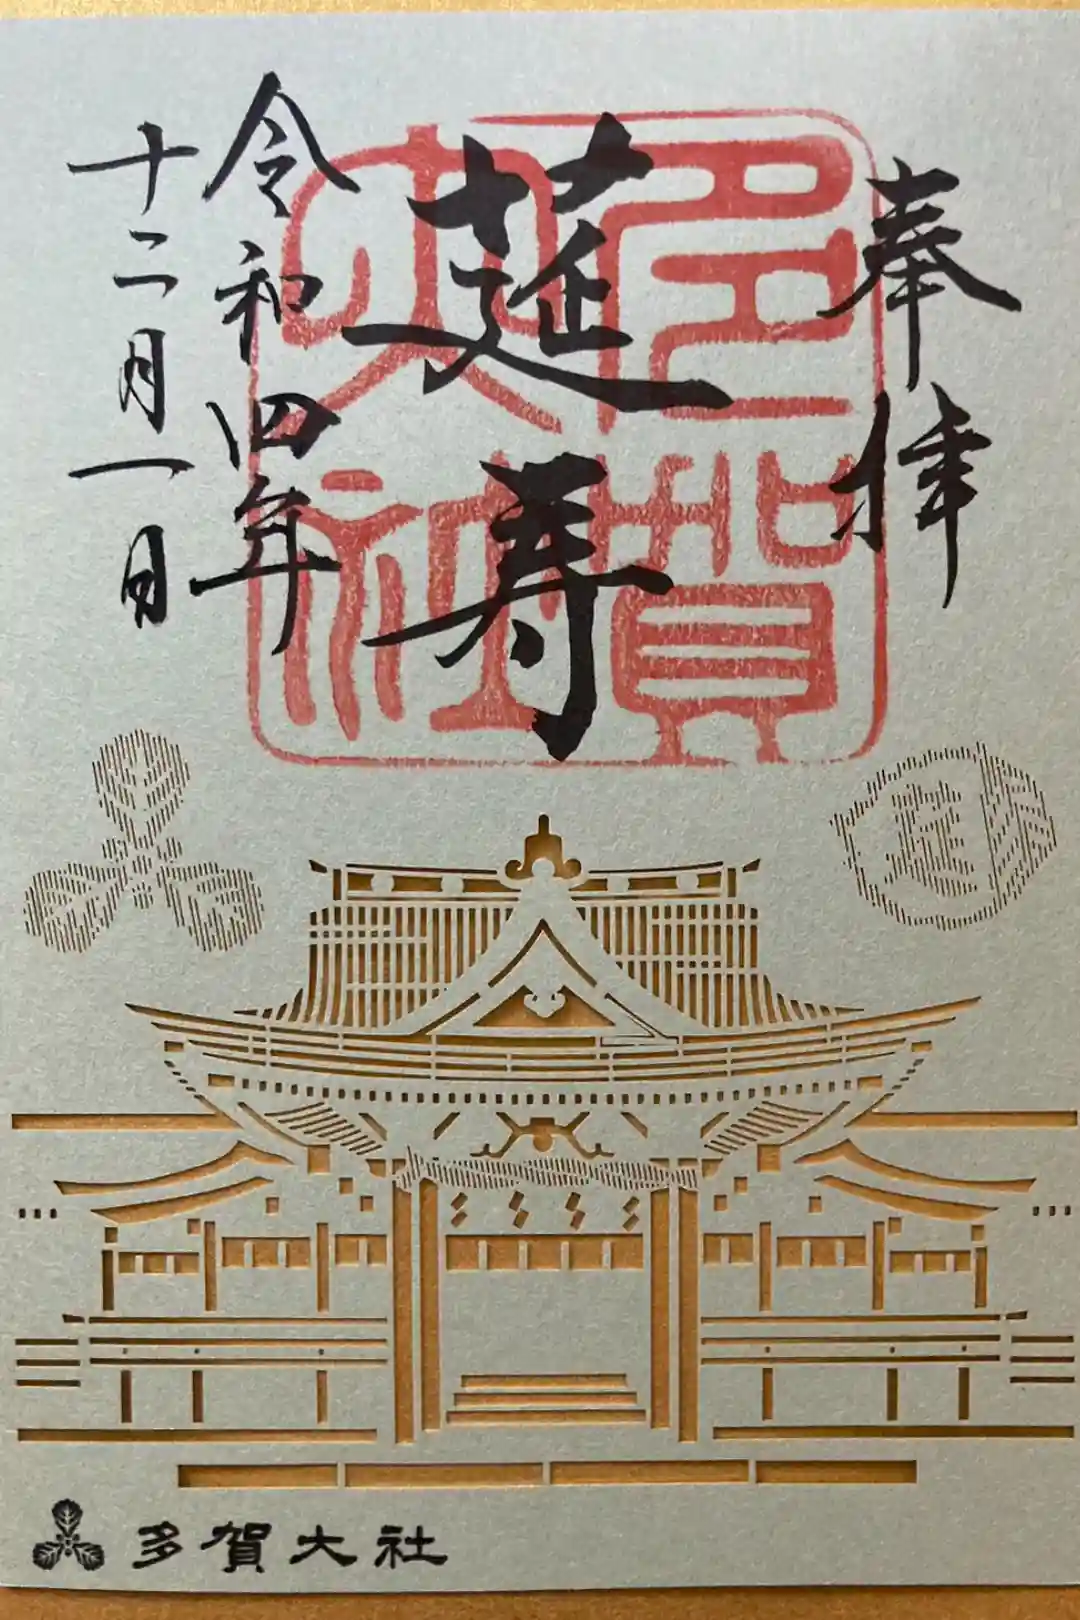 奉拝
延寿
令和四年
十二月一日
多賀
大社
多賀大社